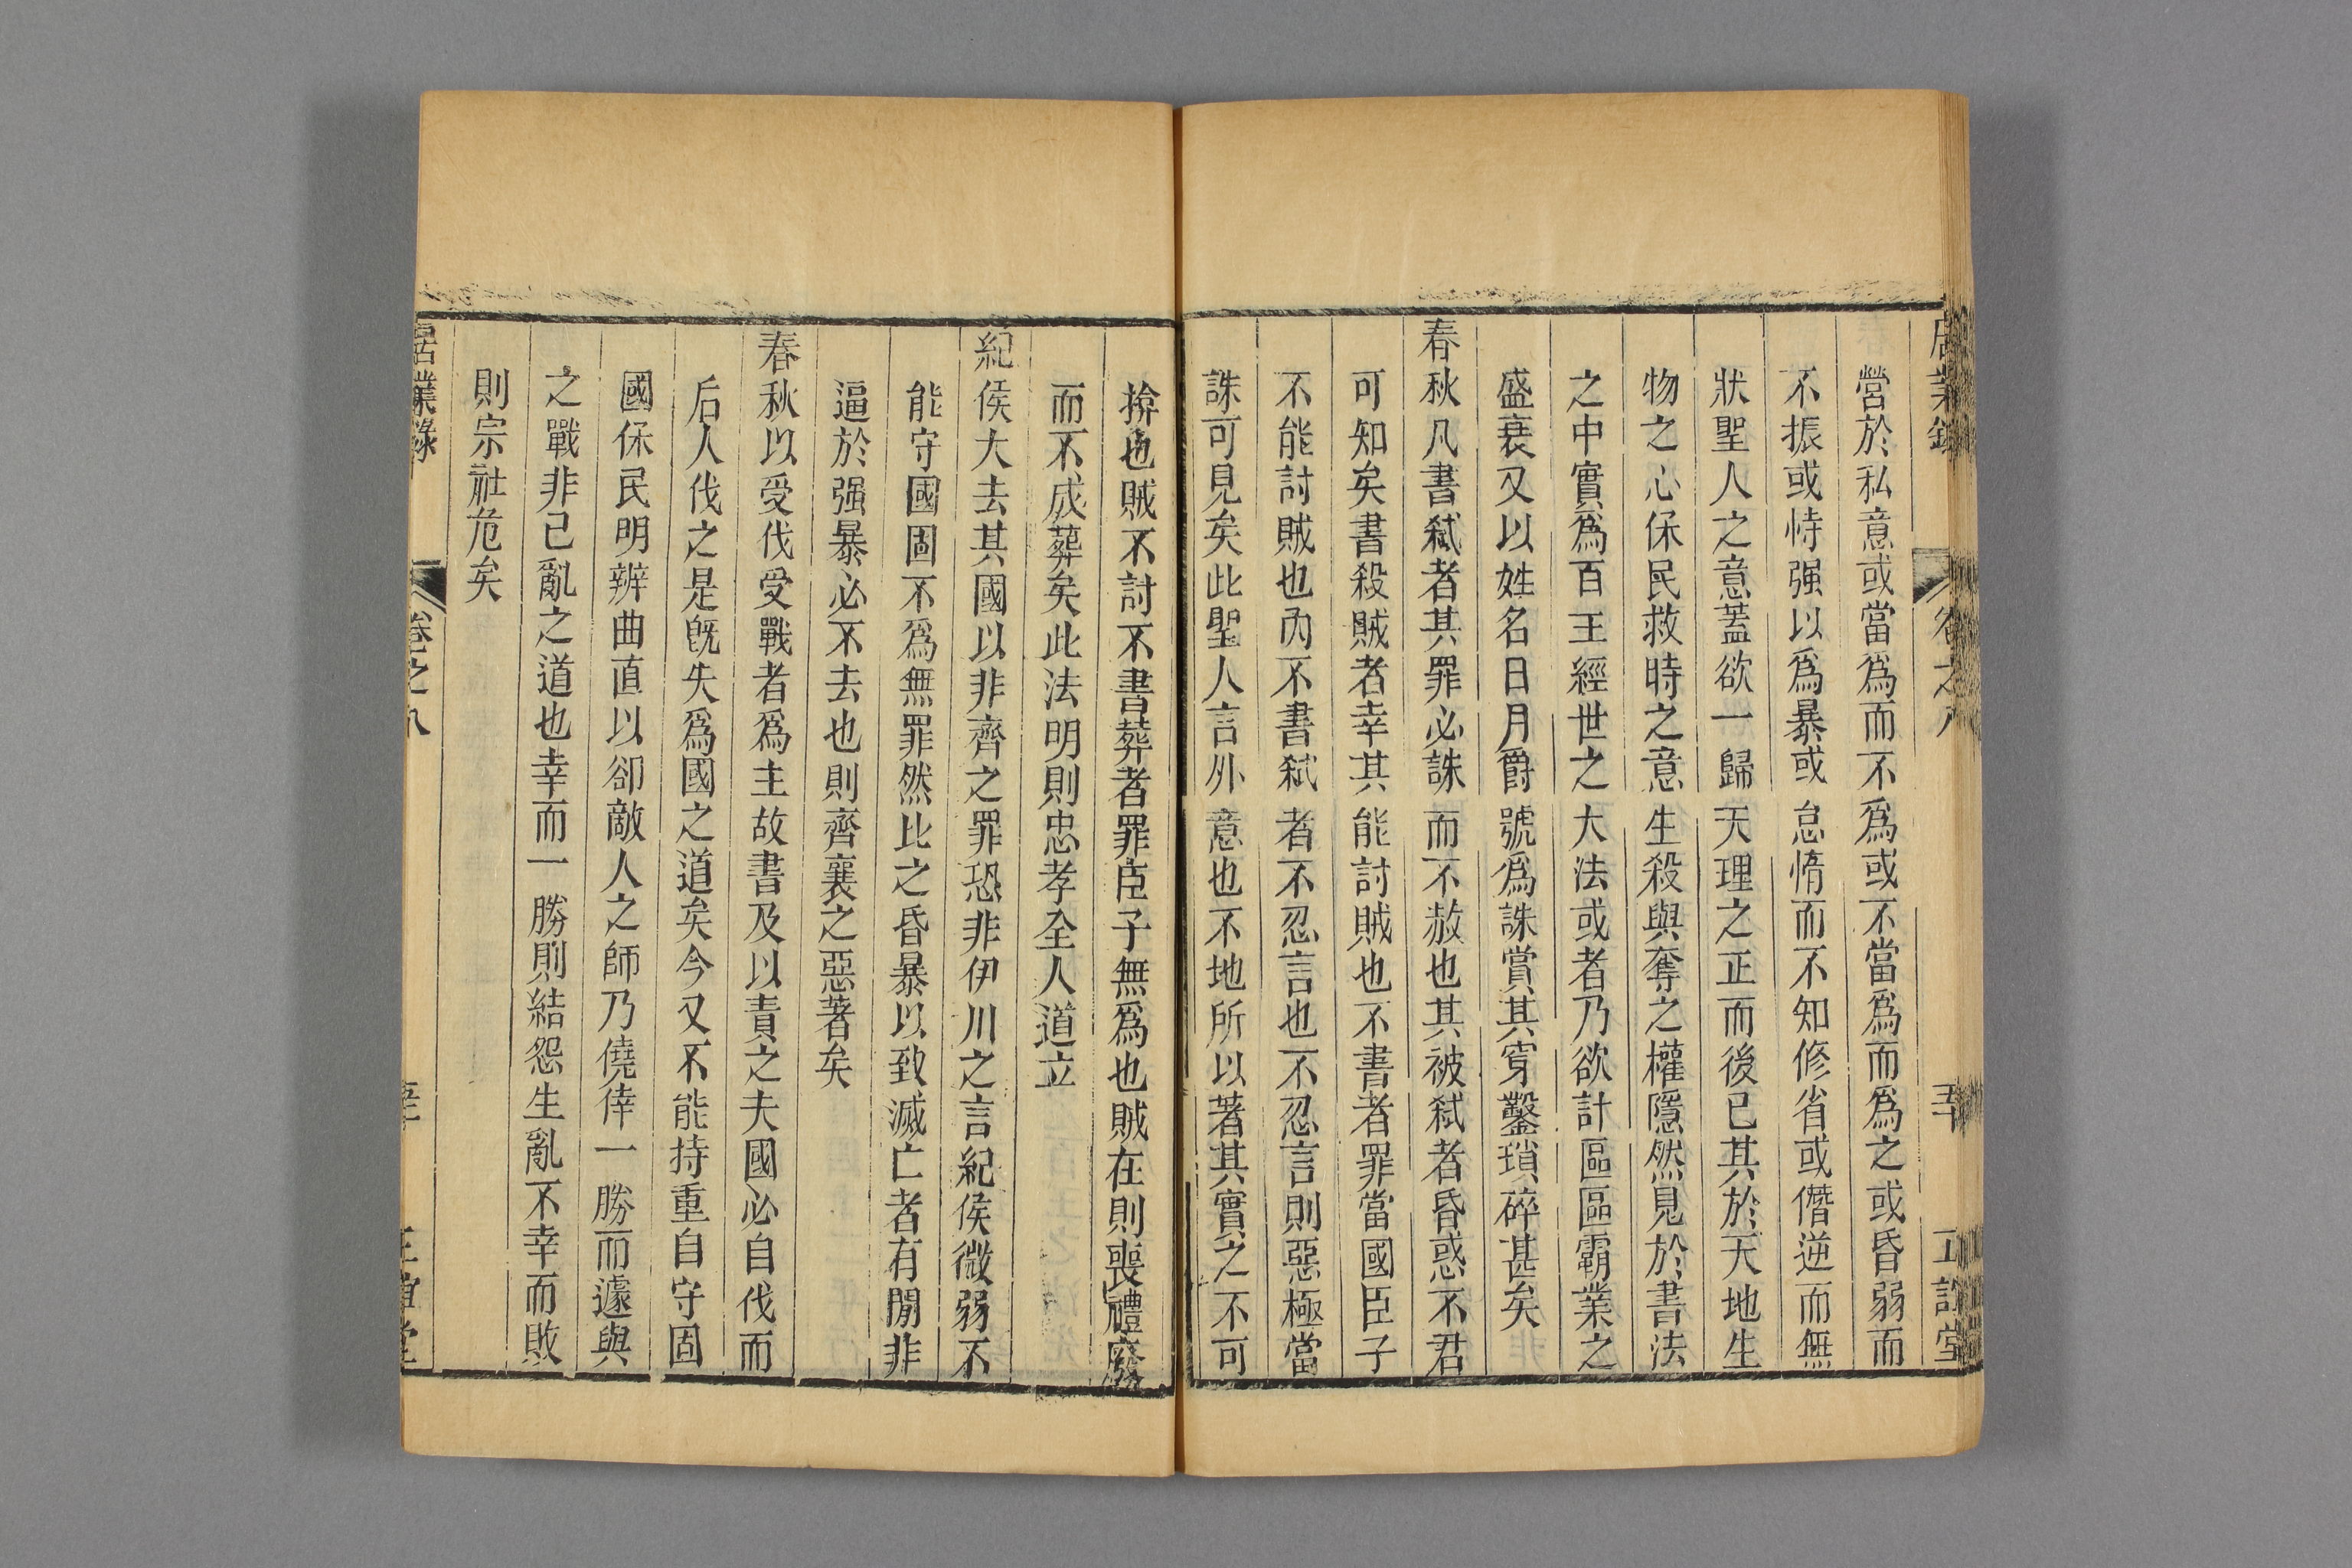 營於私意或當爲而不爲或不當爲而爲之或昏弱而
不振或恃强以爲暴或怠惰而不知修省或僭逆而無
狀聖人之意蓋欲一歸天理之正而後已其於天地生
物之心保民救時之意生殺與奪之權隱然見於書法
之中實爲百王經世之大法或者乃欲計區區霸業之
盛衰又以姓名日月爵號爲誅賞其穿鑿瑣碎甚矣
春秋凡書弑者其罪必誅而不赦也其被弑者昏惑不君
可知矣書殺賊者幸其能討賊也不書者罪當國臣子
不能討賊也內不書弑者不忍言也不忍言則惡極當
誅可見矣此聖人言外意也不地所以著其實之不可
揜也賊不討不書葬者罪臣子無爲也賊在則喪禮廢
而不成葬矣此法明則忠孝全人道立
紀侯大去其國以非齊之罪恐非伊川之言紀侯微弱不
能守國固不爲無罪然比之昏暴以致滅亡者有閒非
逼於强暴必不去也則齊襄之惡著矣
春秋以受伐受戰者爲主故書及以責之夫國必自伐而
后人伐之是旣失爲國之道矣今又不能持重自守固
國保民明辨曲直以卻敵人之師乃僥倖一勝而遽與
之戰非已亂之道也幸而一勝則結怨生亂不幸而敗
則宗社危矣
居業錄
卷之八
正誼堂